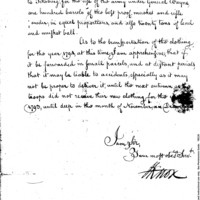 to Pittsburg for the use of the army under General Wayne
one hundred barrels of the best proof musket and rifle
powder, in equal proportions and also twenty tons of lead
and musket ball.
As to the transportation of the clothing
for the year 1794 at this time, I am apprehensive that if
it be forwarded in small parcels, and at distant periods
that it may be liable to accidents, specially as it may
not be proper to deliver it, until the next autumn as
troops did not receive their new clothing for the
1793, until deep in the month of November and
I am Sir,
Your most obed Servt
HKnox